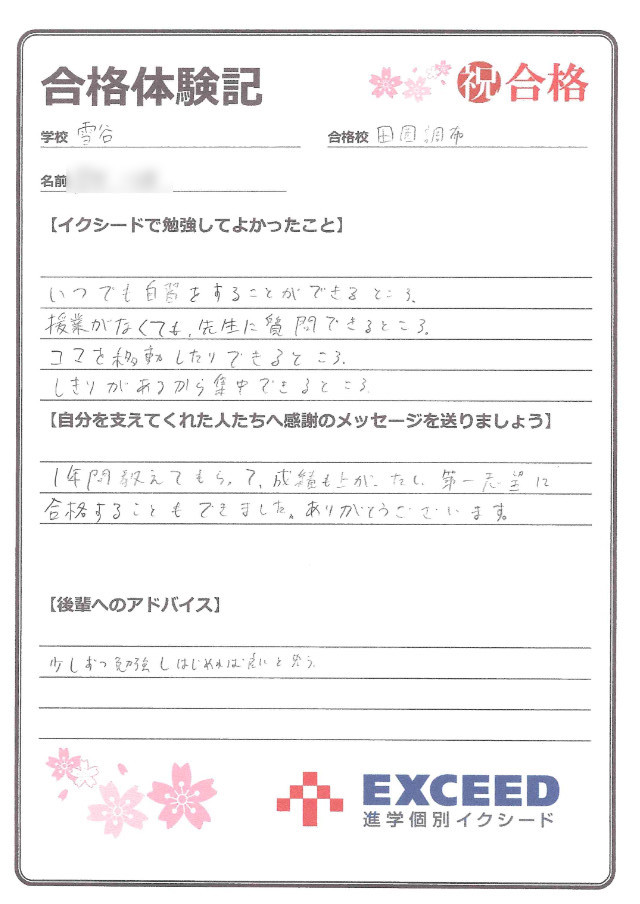 合格体験記
祝 合格
学校 雪谷
合格校 田園調布
名前
【イクシードで勉強してよかったこと】
いつでも自習をすることができるところ。
授業がなくても、先生に質問できるところ。
コマを移動したりできるところ。
しきりがあるから集中できるところ
【自分を支えてくれた人たちへ感謝のメッセージを送りましょう】
1年間教えてもらって、成績も上がったし、第一志望に
合格することもできました。ありがとうございます。
【後輩へのアドバイス】
少しずつ勉強しはじめれば良いと思う。
EXCEED
進学個別イクシード